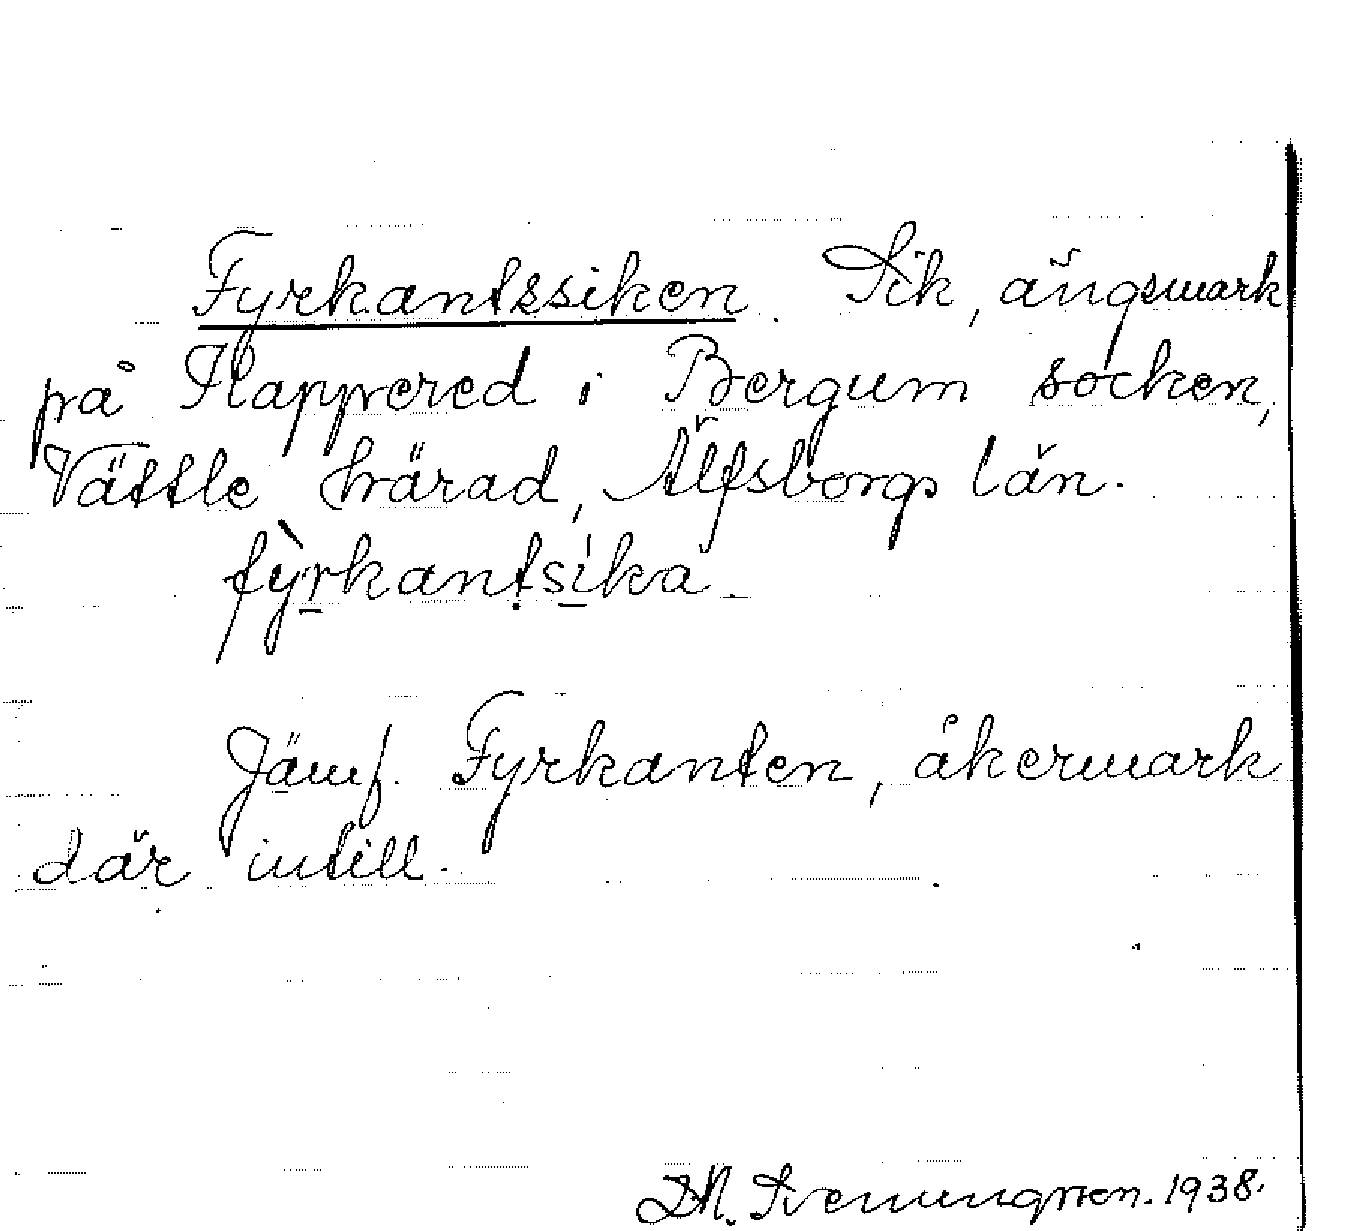 Fyrkantssiken. Sik, ängsmark
på Flappered i Bergum socken,
Vättle härad, Älfsborgs län.
fỳrkantsika
Jämf. Fyrkanten, åkermark
där intill.
1938.